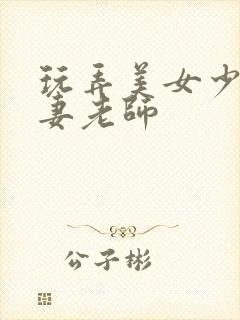 玩弄美女少
妻老师
公子彬